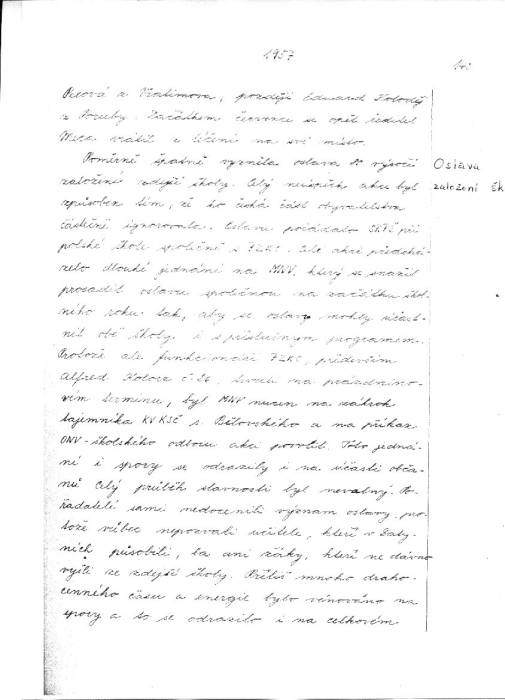 1957
Pecová z Vratimova, později Eduard Koloděj
z Poruby. Začátkem července se opět ředitel
Meca vrátil z léčení na své místo.
Poměrně špatně vyzněla oslava 80 výročí
založení zdejší školy. Celý neúspěch akce byl
způsoben tím, že ho česká část obyvatelstva
částečně ignorovala. Oslavu pořádalo SRPŠ při
polské škole společně s PZKO. Celé akci předchá-
zelo dlouhé jednání na MNV, který se snažil
prosadit oslavu společnou na začátku škol-
ního roku tak, aby se oslavy mohly účast-
nit obě školy i s příslušným programem.
Protože ale funkcionáři PZKO, především
Alfred Kolorz č. 26, trvali na prázdnino-
vém termínu, byl MNV nucen na zákrok
tajemníka KV KSČ s. Bílovského a na příkaz
ONV-školského odboru akci povolit. Toto jedná-
ní i spory se odrazily i na účasti obča-
nů. Celý průběh slavnosti byl nevalný. Po-
řadatelé sami nedocenili význam oslavy, pro-
tože vůbec nepozvali učitele, kteří v Zaby-
ních působili, ba ani žáky, kteří ne dávno
vyšli ze zdejší školy. Příliš mnoho draho-
cenného času a energie bylo věnováno na
spory a to se odrazilo i na celkovém
Oslava
založení šk